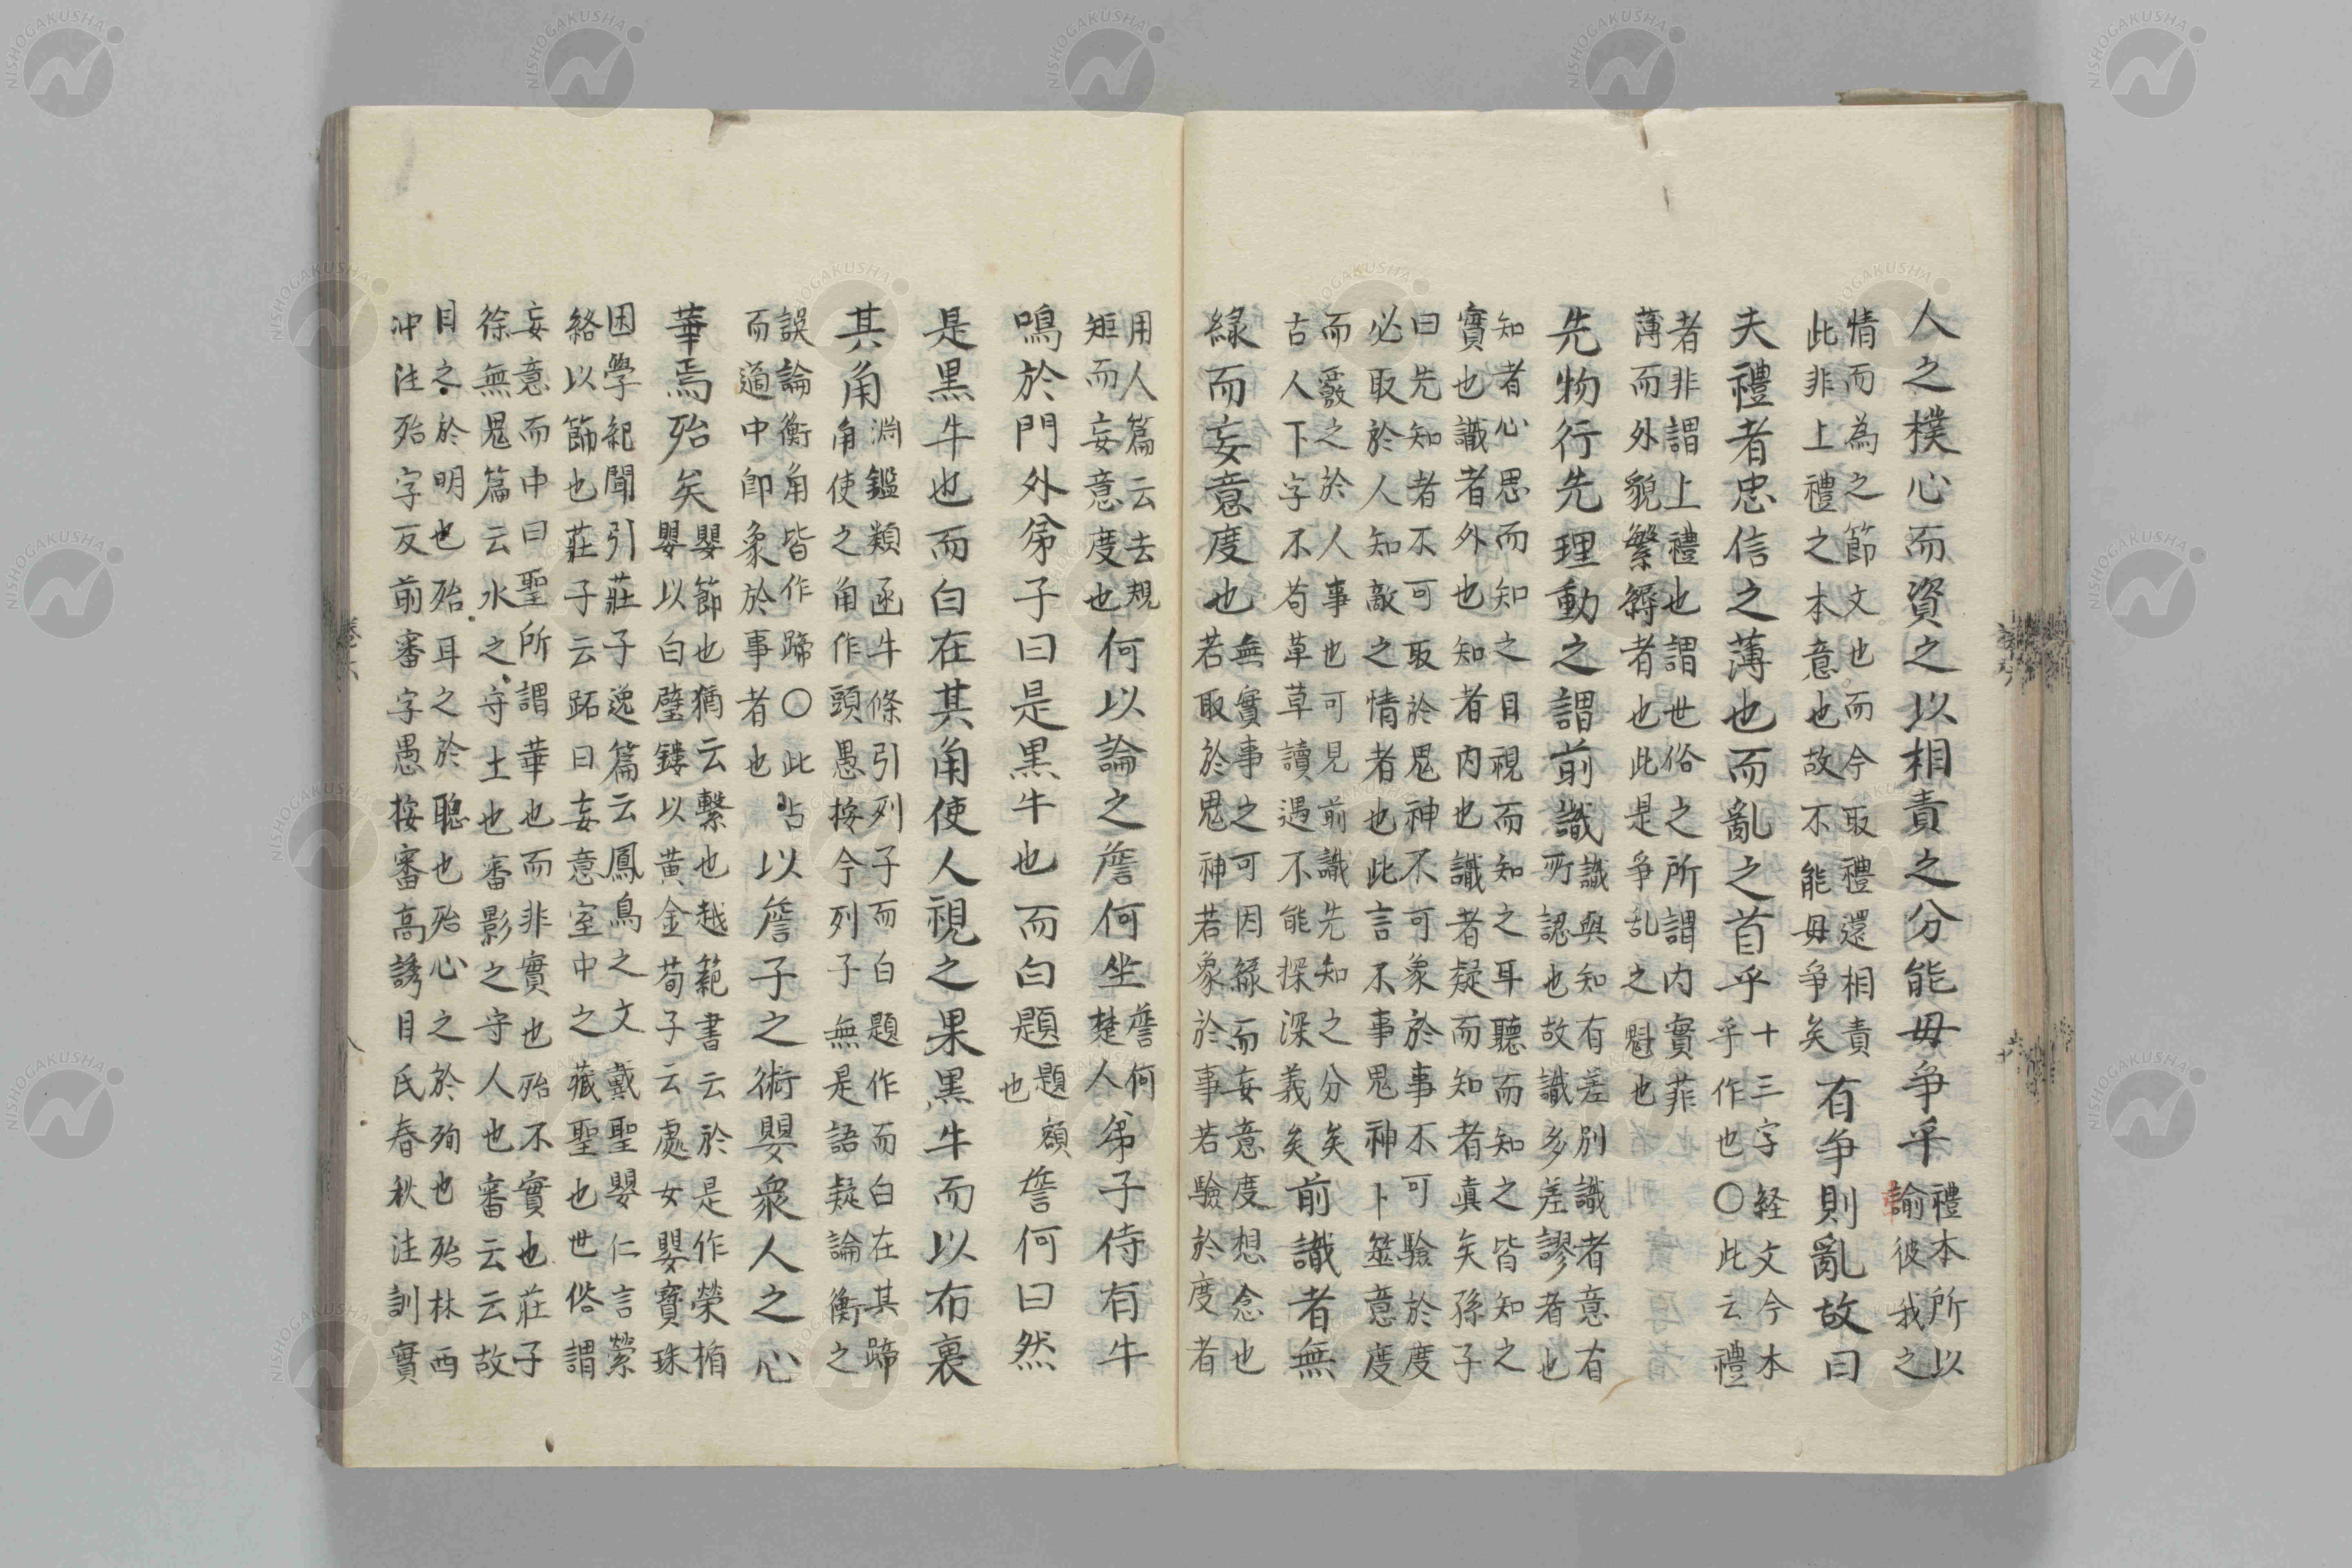 人之樸心而資之以相責之分能毋争乎禮本所以諭彼我之
情而為之節文也而今取禮還相責此非上禮之本意也故不能毋争矣有争則亂故曰
夫禮者忠信之薄也而亂之首乎十三字経文今本乎作也〇此云禮
者非謂上禮也謂世俗之所謂内實菲薄而外貌繁縟者也此是争乱之魁也
先物行先理動之謂前識識與知有差別識者意有所認也故識多差謬者也
知者心思而知之目視而知之耳聽而知之皆知之實也識者外也知者内也識者疑而知者真矣孫子
曰先知者不可取於鬼神不可象於事不可驗於度必取於人知敵之情者也此言不事鬼神卜筮意度
而覈之於人事也可見前識先知之分矣古人下字不苟草草讀過不能探深義矣前識者無
緣而妄意度也無實事之可因緣而妄意度想念也若取於鬼神若象於事若驗於度者
用人篇云去規矩而妄意度也何以論之詹何坐詹何楚人弟子侍有牛
鳴於門外弟子曰是黒牛也而白題題額也詹何曰然
是黒牛也而白在其角使人視之果黒牛而以布裏
其角淵鑑類函牛條引列子而白題作而白在其蹄角使之角作頭愚按今列子無是語疑論衡之
誤論衡角皆作蹄〇此占而適中即象於事者也以詹子之術嬰衆人之心
華焉殆矣嬰節也猶云繫也越範書云於是作榮楯嬰以白璧鏤以黄金荀子云處女嬰寶珠
困學紀聞引莊子逸篇云鳳鳥之文戴聖嬰仁言縈絡以飾也莊子云跖曰妄意室中之藏聖也世俗謂
妄意而中曰聖所謂華也而非實也殆不實也莊子徐無鬼篇云水之守土也審影之守人也審云云故
目之於明也殆耳之於聰也殆心之於殉也殆林西沖注殆字反前審字愚按審高誘呂氏春秋注訓實